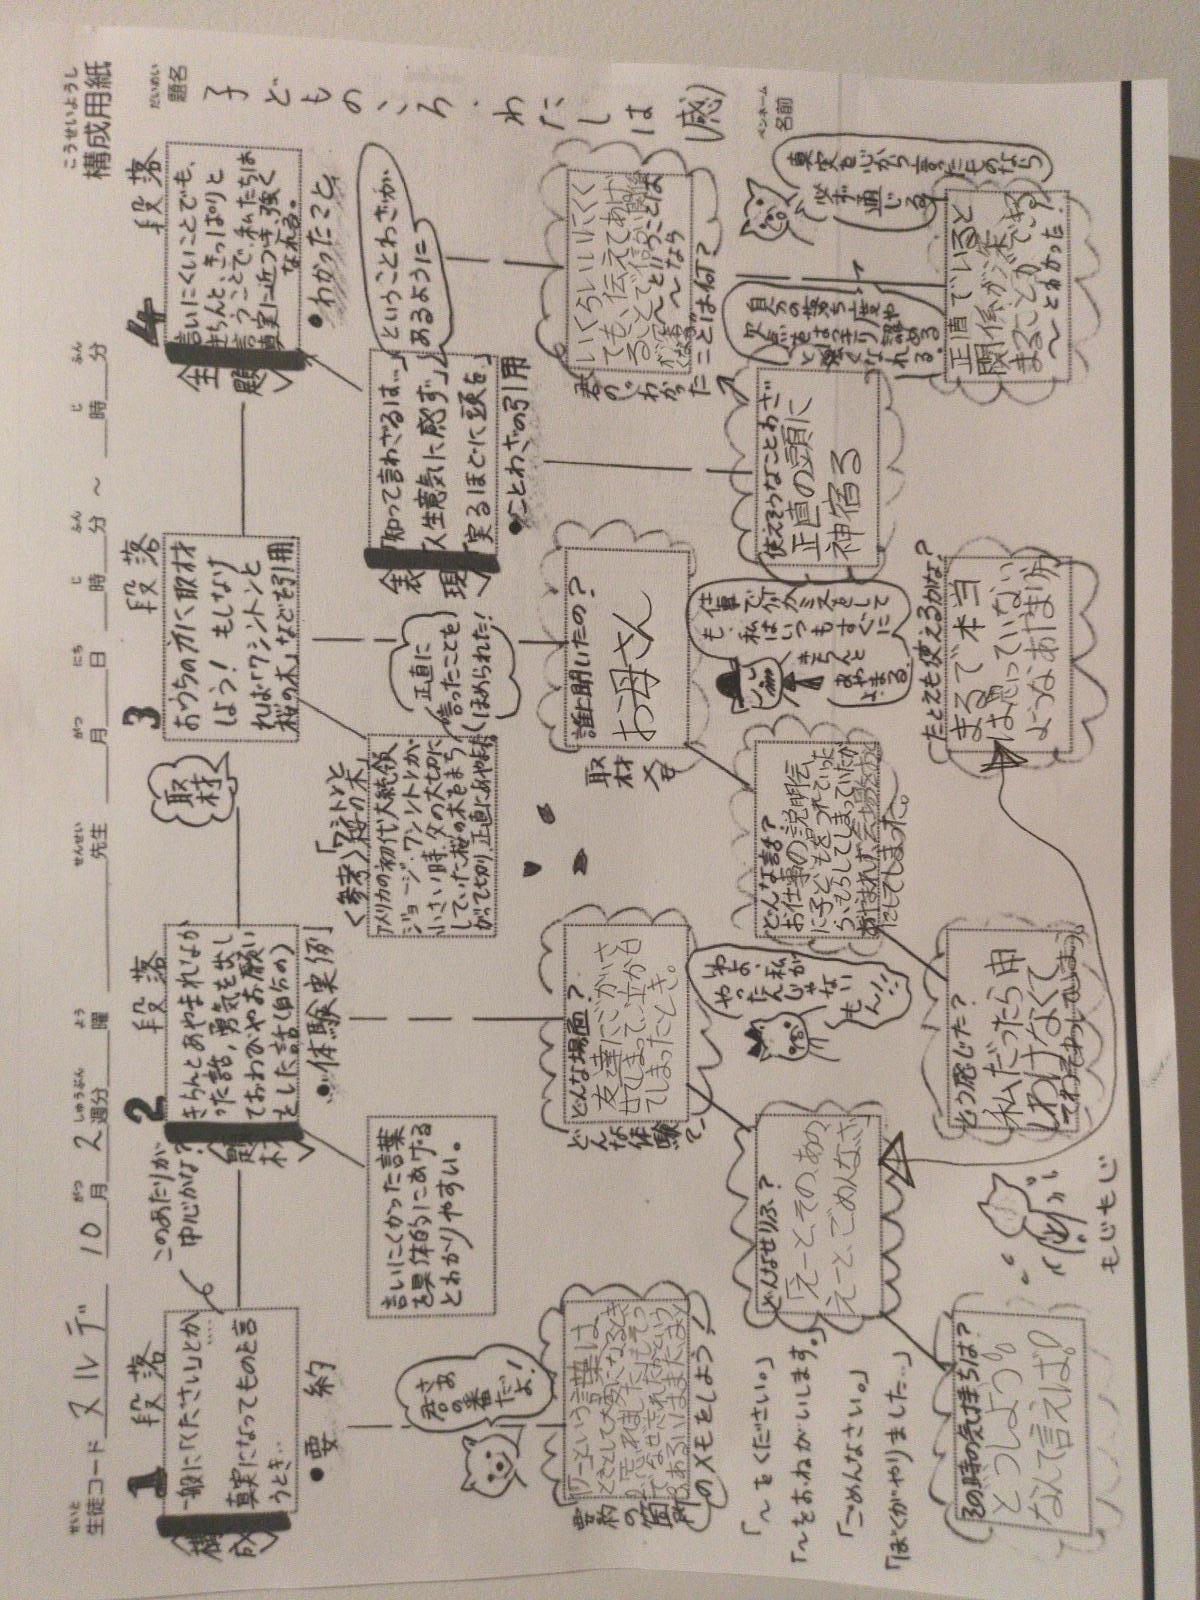 こうせいようし
構成用紙
せいと
生徒コード ヌルデ
10 がつ月 2 しゅうぶん週分 よう曜 せんせい先生 がつ月 にち日 じ時 ふん分 ～ じ時 ふん分
だいめい
題名
子どものころ、わたしは(感)
ペンネーム
名前
1 段落
構成
一般に「ください」とか……
真実になってものを言
うとき…
●要約
君の番だよ!
さあ
要約の箇所
のメモをしよう!
「～をください。」
「～をおねがいします。」
「ごめんなさい。」
「ぼくがやりました…」
このあたりが
中心かな?
2 段落
題材
きちんとあやまれなか
った話、勇気を出し
ておわびやお願い
をした話(自分の)
●体験実例
言いにくかった言葉
を具体的にあげる
とわかりやすい。
どんな体験?
どんな場面?
友達にごかいさ
せてしまって、泣かせ
てしまったとき。
わぁ、私がやったんじゃないもん!!
どんなせりふ?
「えーと、その、あの、
えーと、ごめんなさい
その時の気持ちは?
どうしよう。
なんて言えば。
もじもじ
取材
3 段落
おうちの方に取材
しよう! もしなけ
れば「ワシントンと
桜の木」などを引用
<参考>「ワシントンと桜の木」
アメリカの初代大統領
ジョージ・ワシントンが
小さい時、父の大切に
していた桜の木をまち
がって切り、正直にあやまり
ほめられた!
正直に
言ったことを
取材
誰に聞いたの?
お母さん
仕事で何かミスをして
も、私はいつもすぐに
きちんと
あやまる。
どんな話?
お仕事の説明会
に子どもをつれていった
ら、もらしてしまっていたが
どう感じた?
私だったら申
しわけなくて
たとえも使えるかな?
まるで本当
は思っていない
ようなあやまり方
4 段落
主題
言いにくいことでも、
きちんと、きっぱりと
言うことで、私たちは
真実に近づき、強く
なれる。
●わかったこと
表現
「知って言わざるは…」
「人生意気に感ず」
「実るほどに頭を…」
ということわざが
あるように
●ことわざの引用
君の「わかったこと」は何?
使えそうなことわざ
正直の頭に
神宿る
自分の落ち度や
欠点をはっきり認める
と強くなれる。
正直でいると
関係が深
まることが
～とわかった
真実を心から言ったものなら
必ず通じる